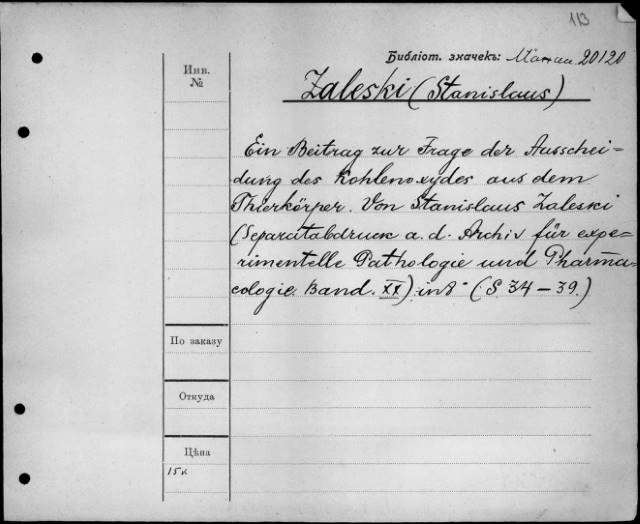 113
Библіот. значекъ: 20120
Инв.
№
Zaleski (Stanislaus)
Ein Beitrag zur Frage der Ausschei-
dung des Kohlenoxydes aus dem
Thierkörper. Von Stanislaus Zaleski
(Separatabdruck a. d. Archiv für expe-
rimentelle Pathologie und Pharma-
cologie. Band. XX) in 8° (S. 34-39.)
По заказу
Откуда
Цѣна
15к